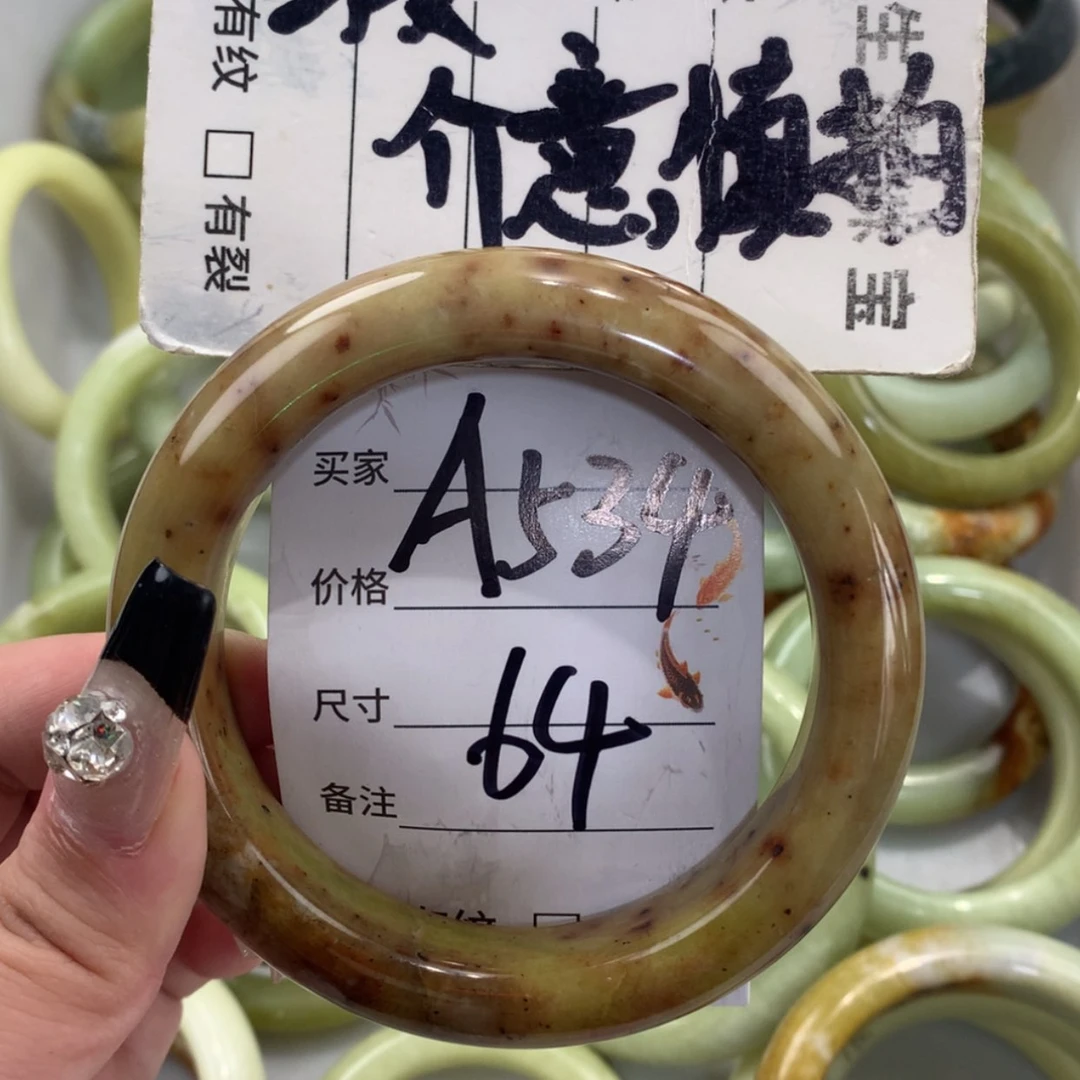 介意慎拍
有纹
□ 有裂
生
宝
买家 A534
价格
尺寸 64
备注